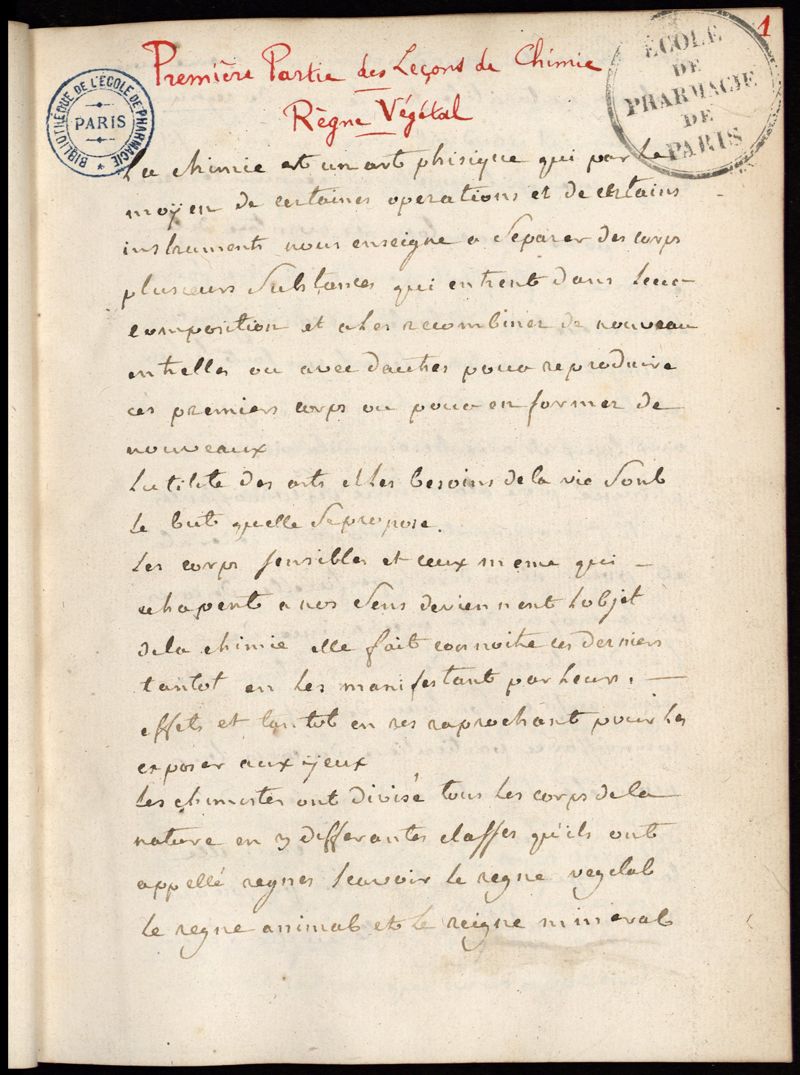 1
Première Partie des Leçons de Chimie
Règne Végétal
BIBLIOTHÈQUE DE L'ÉCOLE DE PHARMACIE
PARIS
ÉCOLE
DE
PHARMACIE
DE
PARIS
La chimie est un art phisique qui par le
moÿen de certaines operations et de certains
instruments nous enseigne a Separer des corps
plusieurs Substances qui entrent dans leur
composition et a les recombiner de nouveau
entrelles ou avec dautres pour reproduire
ces premiers corps ou pour en former de
nouveaux
Lutilité des arts et les besoins de la vie Sont
le but quelle Se propose.
Les corps sensibles et ceux meme qui
echapent a nos Sens deviennent lobjet
de la chimie elle fait connoitre ces derniers
tantot en les manifestant par leurs
effets et tantot en les raprochant pour les
exposer aux ÿeux
Les chimistes ont divisé tous les corps de la
nature en 3 differantes classes qu'ils ont
appellé regnes scavoir le regne vegetal
le regne animal et le reigne mineral